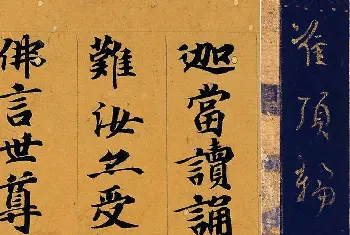 輪
迦當讀誦
難汝受
佛言世尊